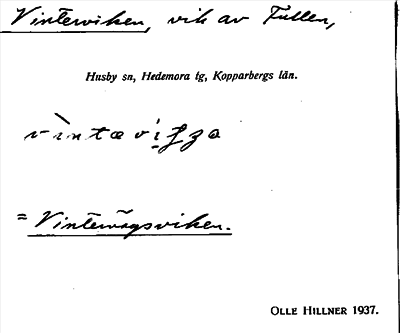 Vinterviken, vik av Fullen,
Husby sn, Hedemora tg, Kopparbergs län.
= Vintervägsviken.
OLLE HILLNER 1937.